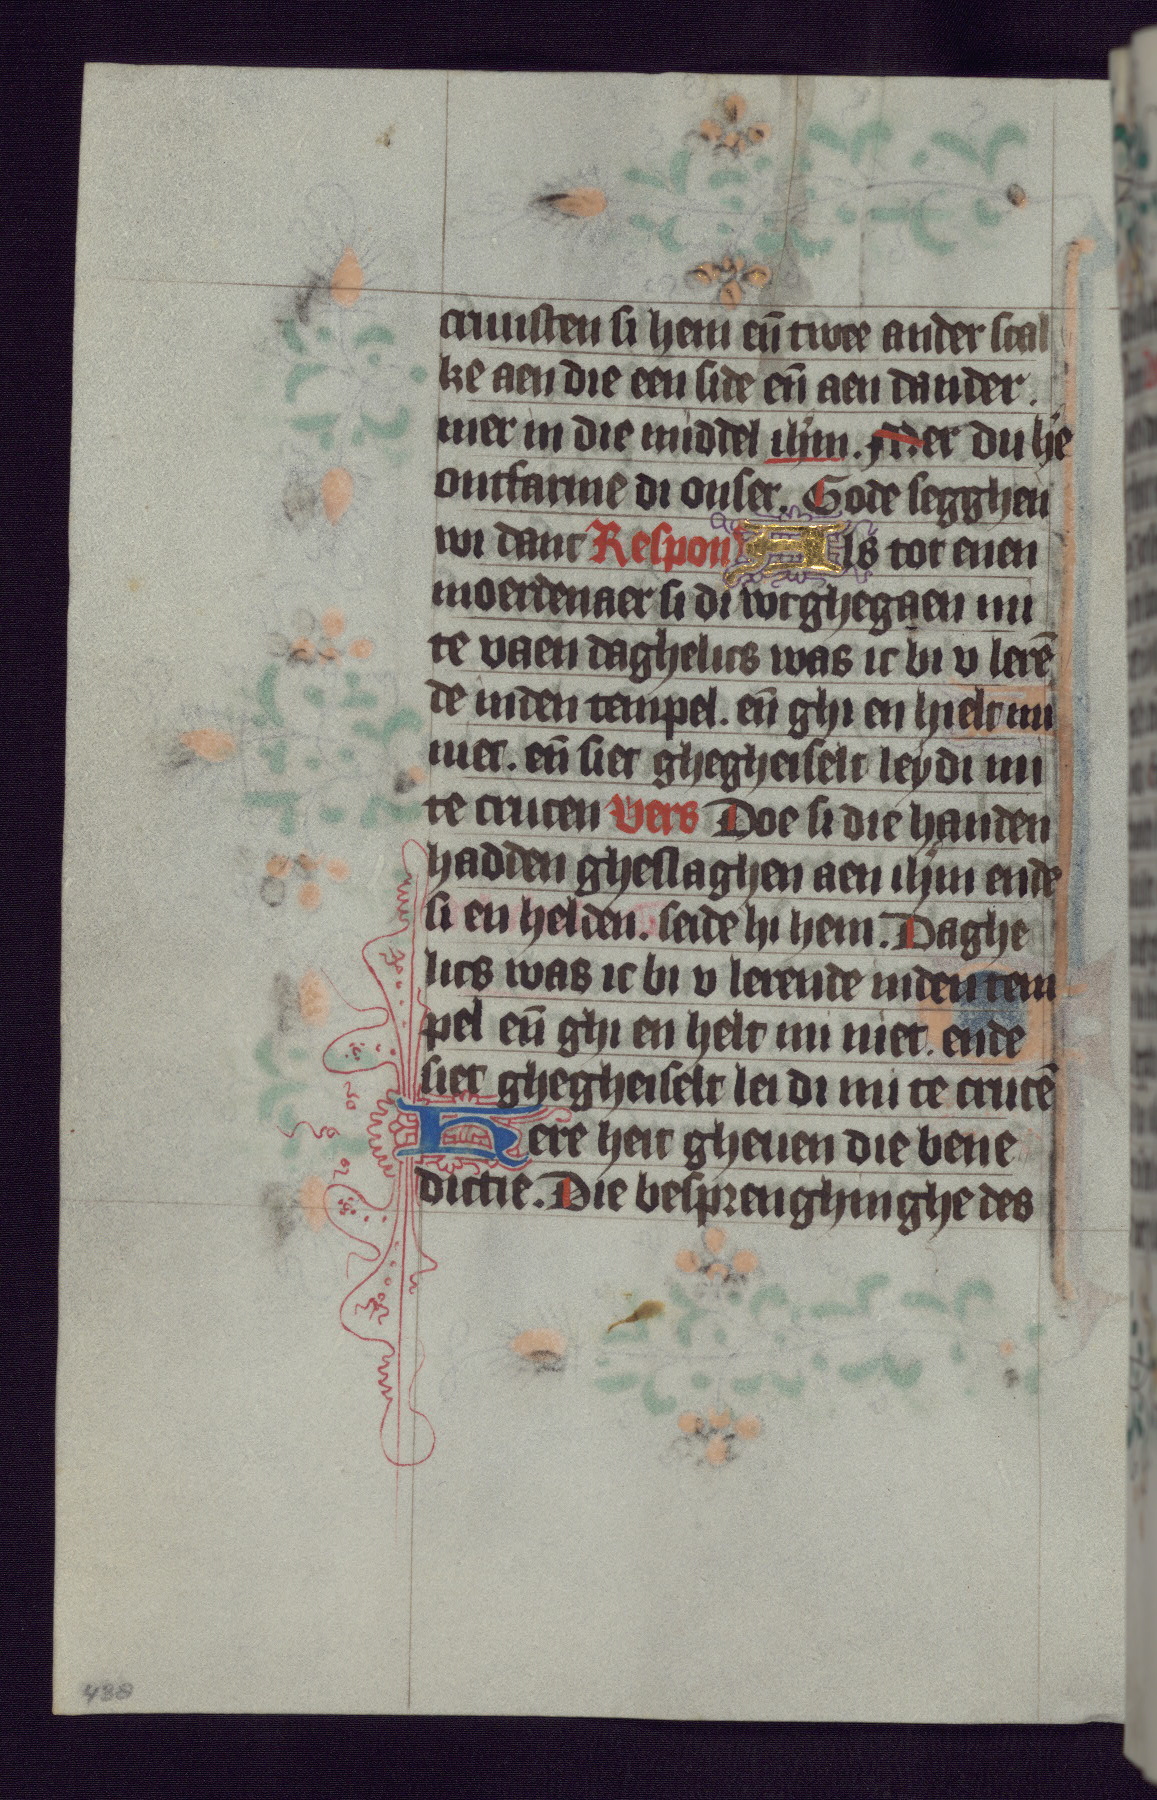 cruusten si hem eñ twee ander scal
ke aen die een side eñ aen dander.
mer in die middel ihm. Mer du he
ontfarme di onser. Gode segghen
wi danc Respon Als tot enen
moerdenaer si di wtghegaen mi
te vaen daghelics was ic bi v lerē
de inden tempel. eñ ghi en hielt mi
niet. eñ siet ghegheiselt leydi mi
te crucen Vers Doe si die handen
hadden gheslaghen aen ihm ende
si en helden. seide hi hem. Daghe
lics was ic bi v lerende inden tem
pel eñ ghi en helt mi niet. ende
siet ghegheiselt lei di mi te crucē
Here heit gheuen die bene
dictie. Die besprenghinghe des
438